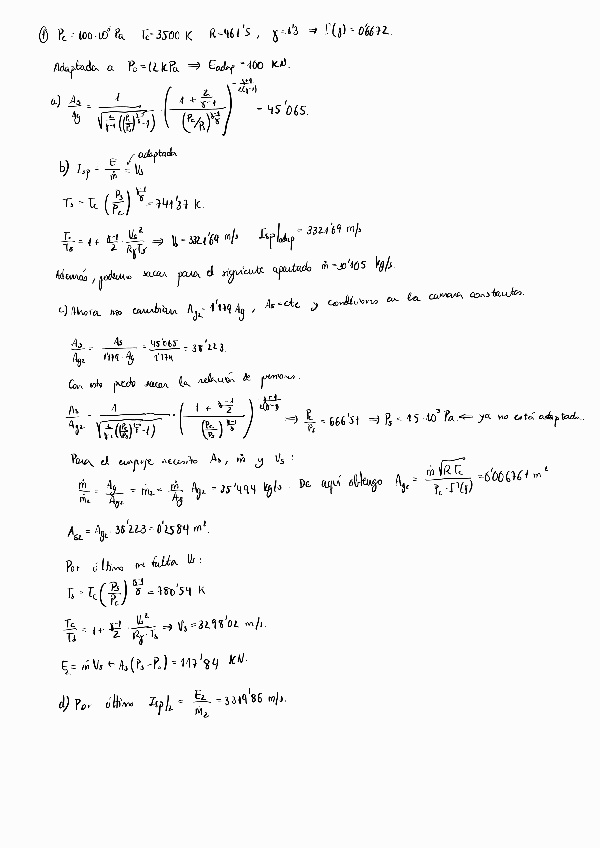 ① Pc = 100·10⁵ Pa Tc = 3500 K R = 461'5 , γ = 1'3 ⇒ Γ(γ) = 0'6672.
Adaptada a Po = 12 kPa ⇒ Eadap = 100 KN.
a) As/Ag = 1/√(2/(γ-1)((Pc/Ps)^((γ-1)/γ) - 1)) · ((1 + 2/(γ-1))/(Pc/Ps)^((γ-1)/γ))^(-(γ+1)/(2(γ-1))) = 45'065.
b) Isp = E/ṁ = Vs adaptada
Ts = Tc (Ps/Pc)^((γ-1)/γ) = 741'37 K.
Tc/Ts = 1 + (γ-1)/2 · Vs²/(RγTs) ⇒ Vs = 3321'69 m/s Isp|adap = 3321'69 m/s
Además, podemos sacar para el siguiente apartado ṁ = 30'105 kg/s.
c) Ahora nos cambian Ag2 = 1'179 Ag , As = cte y condiciones en la camara constantes.
As/Ag2 = As/(1'179·Ag) = 45'065/1'179 = 38'223.
Con esto puedo sacar la relación de presiones.
As/Ag2 = 1/√(2/(γ-1)((Pc/Ps)^((γ-1)/γ) - 1)) · ((1 + (γ-1)/2)/(Pc/Ps)^((γ-1)/γ))^((γ+1)/(2(γ-1))) ⇒ Pc/Ps = 666'51 ⇒ Ps = 15·10³ Pa ← ya no está adaptada.
Para el empuje necesito As, ṁ y Vs :
ṁ/ṁ2 = Ag/Ag2 ⇒ ṁ2 = ṁ/Ag Ag2 = 35'494 kg/s. De aquí obtengo Ag2 = ṁ√(R Tc)/(Pc·Γ(γ)) = 0'00676 m²
As2 = Ag2 38'223 = 0'2584 m².
Por último me falta Vs :
Ts = Tc (Ps/Pc)^((γ-1)/γ) = 780'54 K
Tc/Ts = 1 + (γ-1)/2 · Vs²/(Rγ·Ts) ⇒ Vs = 3298'02 m/s.
E2 = ṁ Vs + As (Ps - Po) = 117'84 KN.
d) Por último Isp|2 = E2/ṁ2 = 3319'86 m/s.